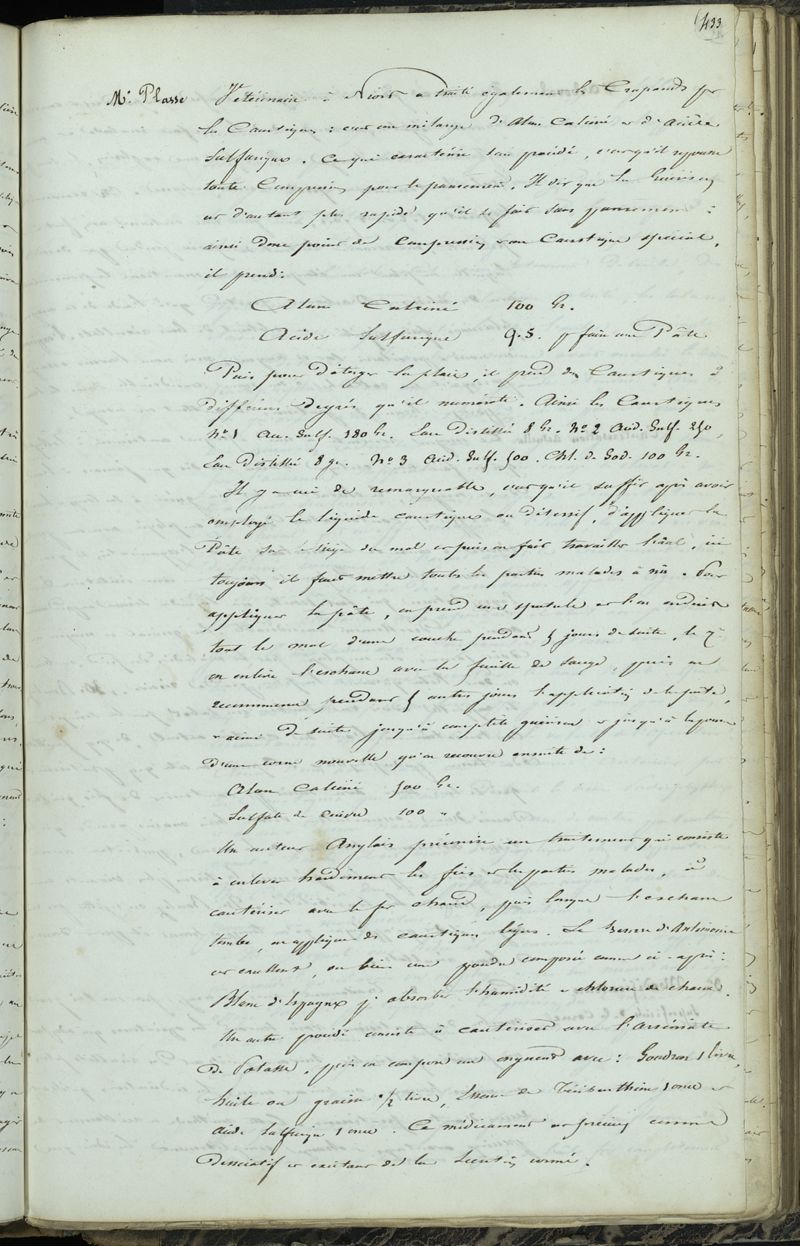 433
Mr. Plasse Vétérinaire à Niort a traité également les Crapauds par
les Caustiques : avec un mélange d'Alun Calciné et d'acide
Sulfurique. Ce qui caractérise son procédé, c'est qu'il repousse
toute Compression pour le pansement. Il dit que la Guérison
est d'autant plus rapide qu'il se fait sans pansement :
ainsi donc point de Compression un Caustique spécial,
il prend :
Alun Calciné 100 Gr.
Acide Sulfurique Q.S. pr faire une Pâte
Puis pour déterger la plaie, il prend des Caustiques à
différens degrés qu'il numérote. Ainsi les Caustiques
No 1 Ac. Sulf. 180 Gr. Eau Distillée 8 Gr. No 2 Acid. Sulf. 250,
Eau Distillée 8 gr. No 3 Acid. Sulf. 500. Chl. de Sod. 100 Gr.
Il y a ici de remarquable, c'est qu'il suffit après avoir
employé le liquide caustique ou détersif, d'appliquer la
Pâte sur le siège du mal et puis on fait travailler l'anal, ici
toujours il faut mettre toutes les parties malades à nu. Pour
appliquer la pâte, on prend une spatule et l'on enduit
tout le mal d'une couche pendant 5 jours de suite, le 7e
on enlève l'eschare avec la feuille de sauge, puis on
recommence pendant 5 autres jours l'application de la pâte,
et ainsi de suite jusqu'à complète guérison et jusqu'à la pousse
d'une corne nouvelle qu'on recouvre ensuite de :
Alun Calciné 500 Gr.
Sulfate de Cuivre 100 "
Un auteur Anglais préconise un traitement qui consiste
à enlever hardiment les fics et les parties malades, à
cautériser avec le fer chaud, puis lorsque l'eschare
tombe, on applique des caustiques légers. Le Beurre d'Antimoine
est excellent, ou bien une poudre composée comme ci-après :
Blanc d'Espagne pr absorber l'humidité et chlorure de chaux.
Un autre procédé consiste à cautériser avec l'Arséniate
de Potasse, puis on compose un onguent avec : Goudron 1 livre,
huile ou graisse 1/2 livre, Essence de Térébenthine 1 once et
acide sulfurique 1 once. Ce médicament est précieux comme
Dessicatif et excitant de la sécrétion cornée.